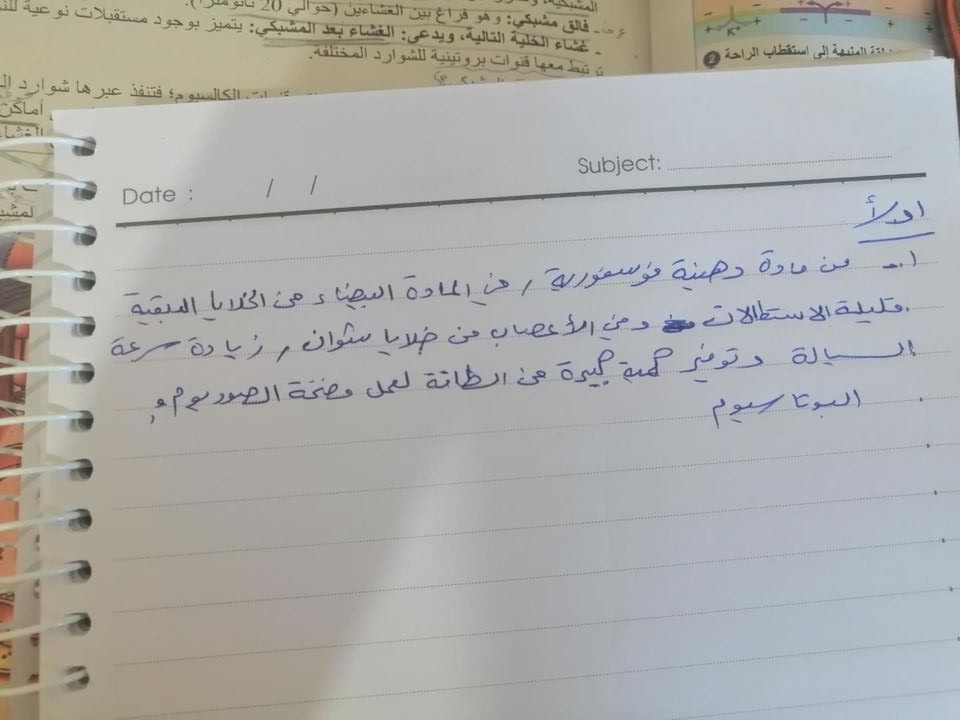 المشبكية،
- فالق مشبكي: وهو فراغ بين الغشاءين (حوالي 20 نانومتر).
- غشاء الخلية التالية، ويدعى: الغشاء بعد المشبكي: يتميز بوجود مستقبلات نوعية
ترتبط معها قنوات بروتينية للشوارد المختلفة.
الكالسيوم؛ فتنفذ عبرها شوارد
أماكن
K+
المنبهة إلى استقطاب الراحة 2
Date : / /
Subject:
اولاً
1- من مادة دهنية فوسفورية , في المادة البيضاء من الخلايا الدبقية
قليلة الاستطالات ومن الأعصاب من خلايا شوان , زيادة سرعة
السيالة وتوفير كمية كبيرة من الطاقة لعمل مضخة الصوديوم و
البوتاسيوم